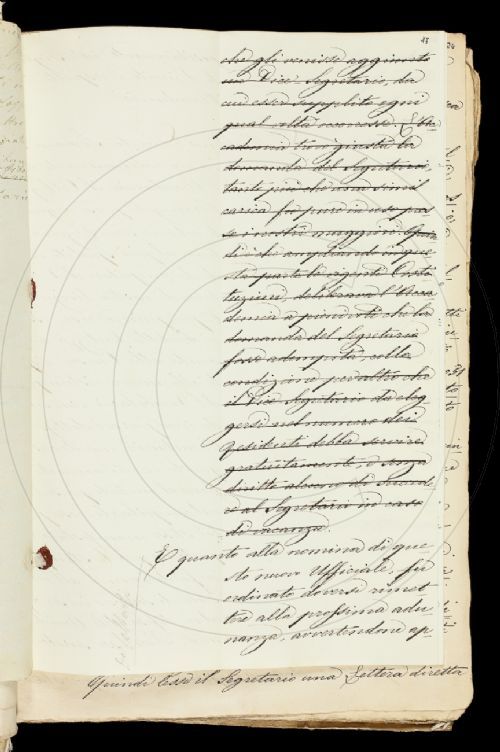 18
che gli venisse aggiunto
un Vice Segretario, da
cui esser supplito ogni
qual volta occorresse. L'Ac-
cademia trovò giusta la
domanda del Segretario,
tanto più che una simil
carica fu pure in uso pres-
so i nostri maggiori. Quin-
di è che ampliando in que-
sta parte le vigenti Costi-
tuzioni, deliberava l'Acca-
demia a pieni voti che la
domanda del Segretario
fosse adempita, colla
condizione peraltro che
il Vice Segretario da eleg-
gersi nel numero dei
residenti debba servire
gratuitamente, e senza
diritto alcuno di succede-
re al Segretario in caso
di vacanza.
E quanto alla nomina di que-
sto nuovo Uffiziale, fu
ordinato doversi rimet-
tere alla prossima adu-
nanza, avvertendone ap-
Quindi lesse il Segretario una Lettera diretta